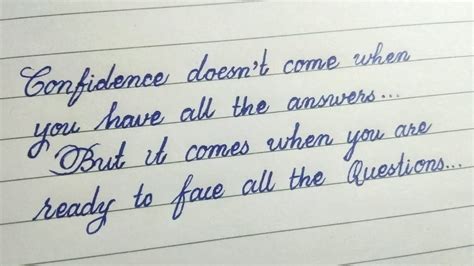 Confidence doesn't come when
you have all the answers...
But it comes when you are
ready to face all the Questions...